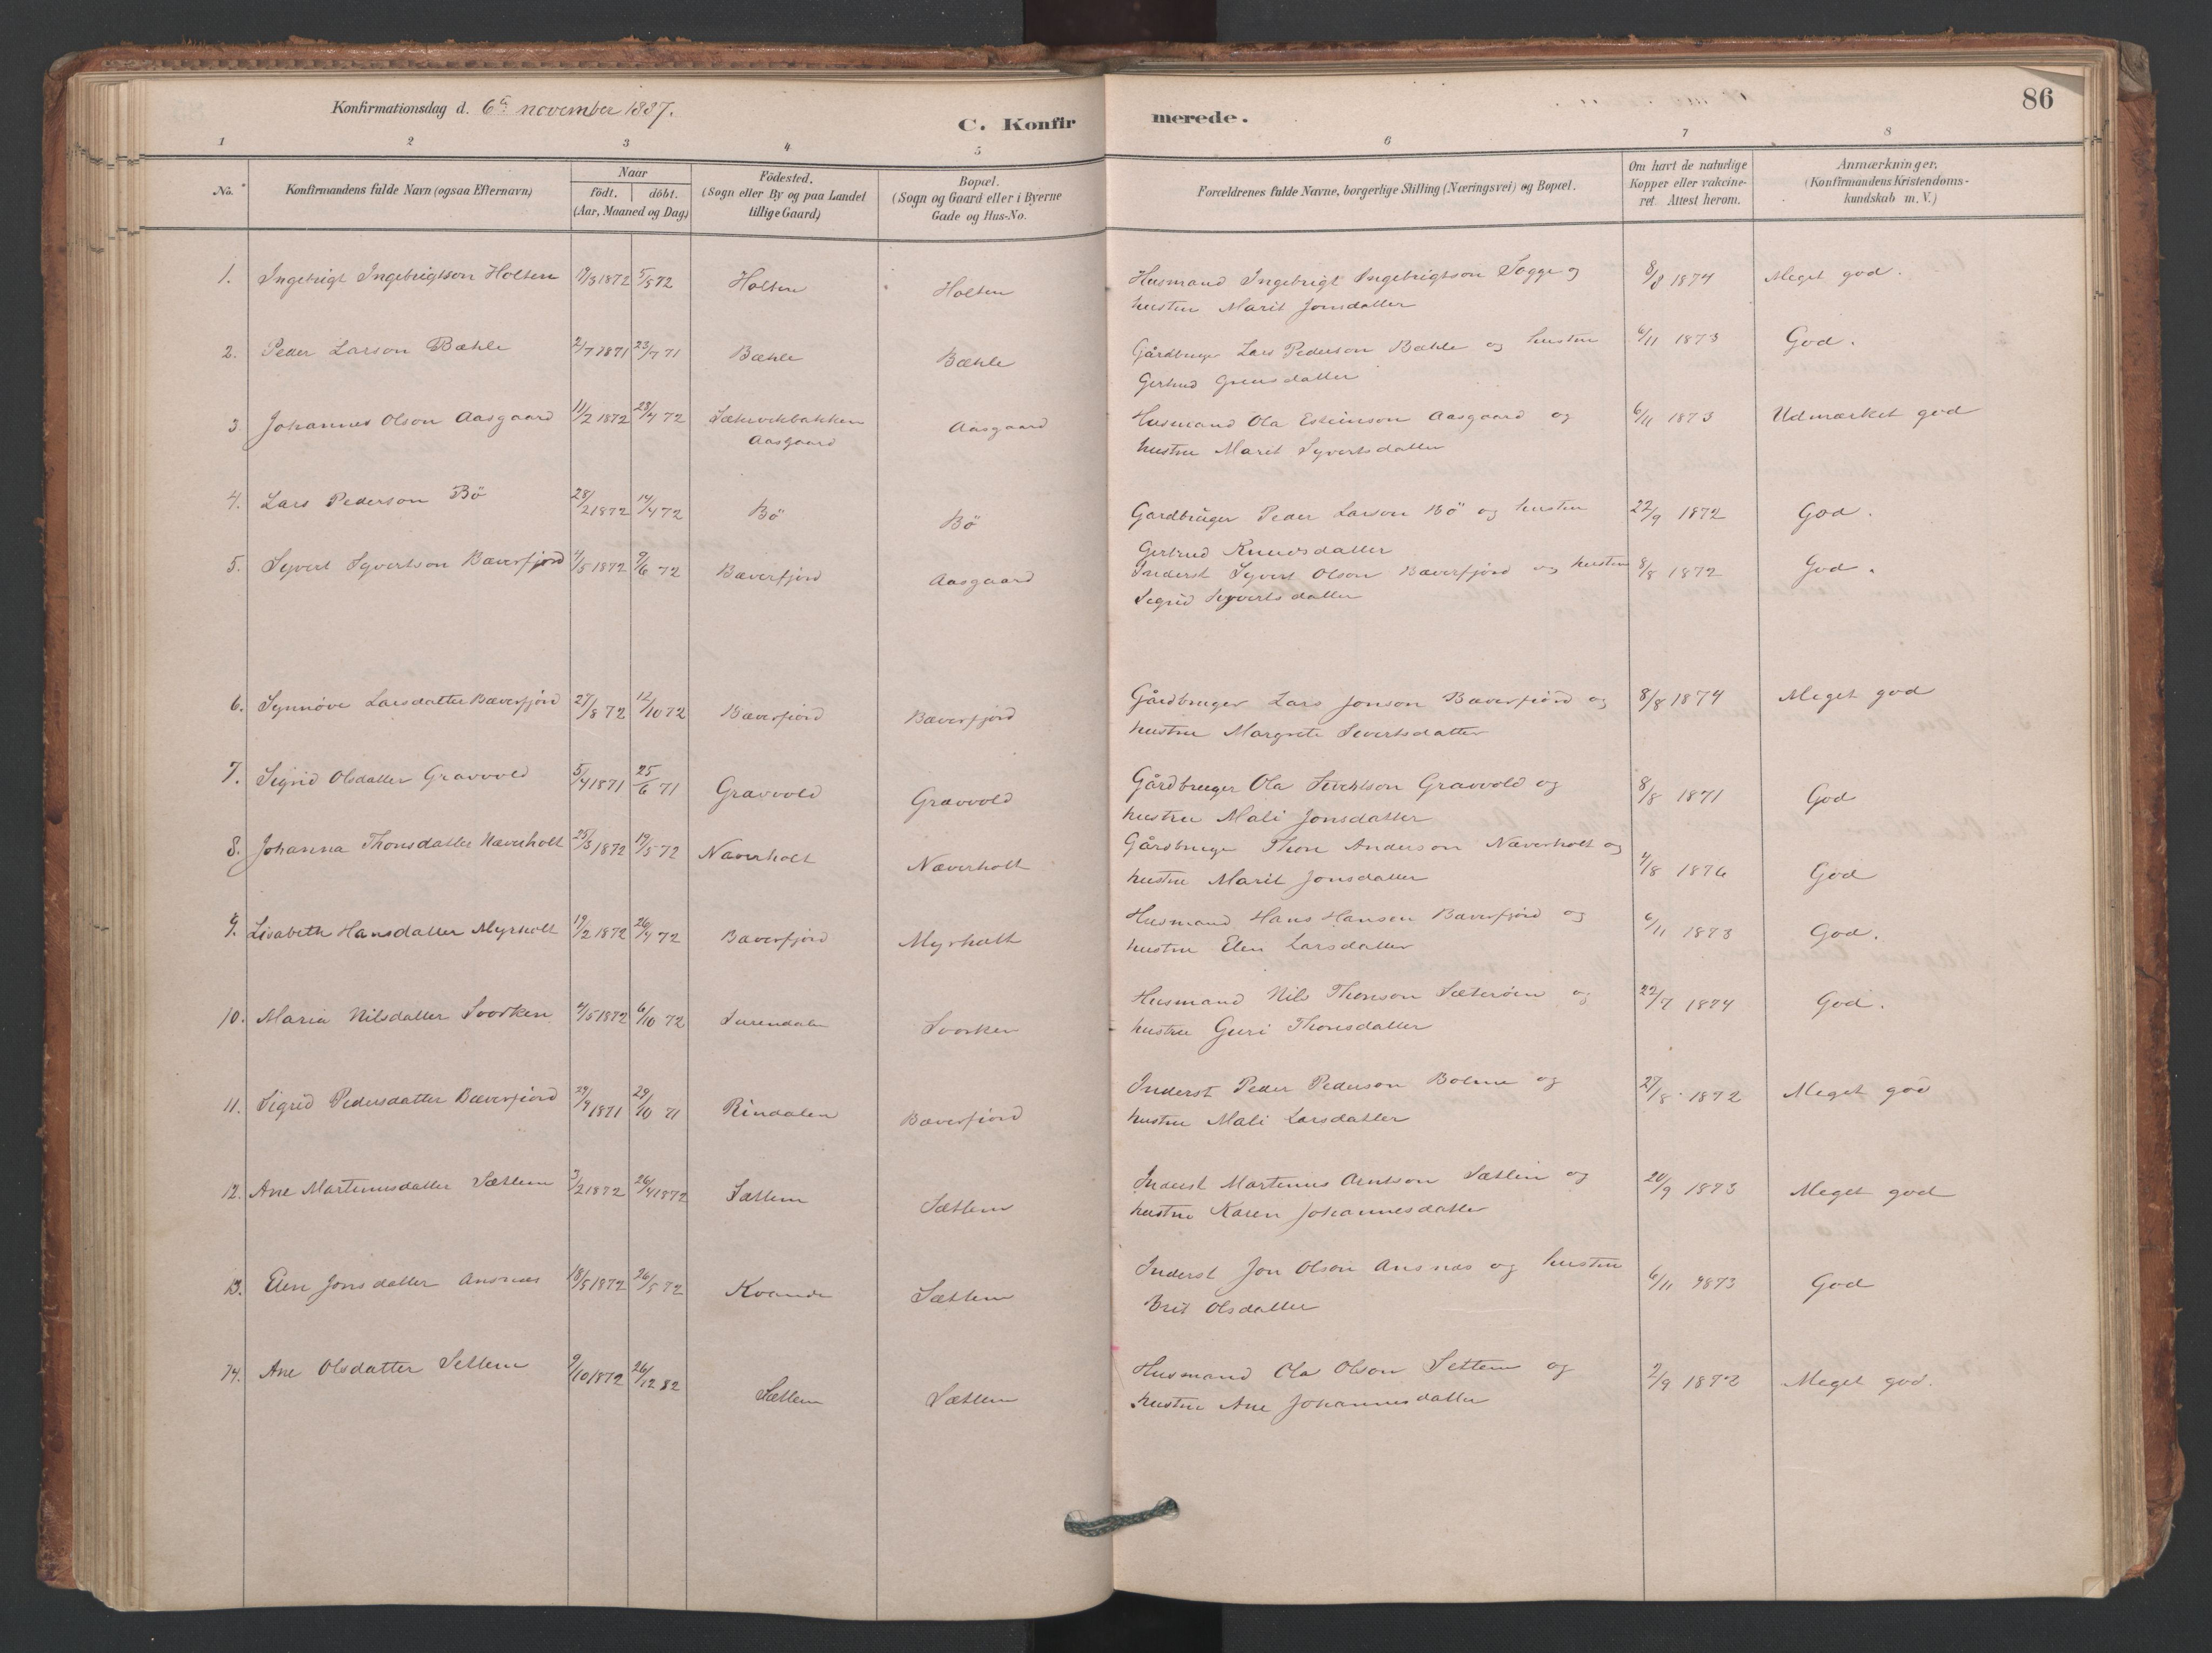 Konfirmationsdag d. 6te november 1887.
C. Konfirmerede.
86
1 2 3 4 5 6 7 8
No.
Konfirmandens fulde Navn (ogsaa Efternavn)
Naar
födt. döbt.
(Aar, Maaned og Dag)
Födested.
(Sogn eller By og paa Landet
tillige Gaard)
Bopæl.
(Sogn og Gaard eller i Byerne
Gade og Hus-No.
Forældrenes fulde Navne, borgerlige Stilling (Næringsvei) og Bopæl.
Om havt de naturlige
Kopper eller vakcine-
ret. Attest herom.
Anmærkninger.
(Konfirmandens Kristendoms-
kundskab m. V.)
1. Ingebrigt Ingebrigtson Holten 5/5 72 Holten Holten Husmand Ingebrigt Ingebrigtson Sogge og 8/8 1874 Meget god.
hustru Marit Jonsdatter
2. Peder Larson Bæhle 2/7 1871 23/7 71 Bæhle Bæhle Gårdbruger Lars Pederson Bæhle og hustru 6/11 1873 God.
Gertrud
3. Johannes Olson Aasgaard 11/2 1872 28/4 72 Aasgaard Husmand Ola Aasgaard og 6/11 1873 Udmærket god
Aasgaard hustru Marit Syvertsdatter
4. Lars Pederson Bö 28/2 1872 14/4 72 Bö Bö Gardbruger Peder Larson Bö og hustru 22/9 1872 God.
Gertrud Knudsdatter
5. Syvert Syvertson Bæverfjord 4/5 1872 9/6 72 Bæverfjord Aasgaard Inderst Syvert Olson Bæverfjord og hustru 8/8 1872 God.
Sigrid Syvertsdatter
6. Synnöve Larsdatter Bæverfjord 27/8 72 12/10 72 Bæverfjord Bæverfjord Gårdbruger Lars Jonson Bæverfjord og 8/8 1874 Meget god
hustru Margrete Sivertsdatter
7. Sigrid Olsdatter Gravvold 5/4 1871 25/6 71 Gravvold Gravvold Gårdbruger Ola Sivertson Gravvold og 8/8 1871 God
hustru Mali Jonsdatter
8. Johanna Thonsdatter Næverholt 25/3 1872 19/5 72 Næverholt Næverholt Gårdbruger Thon Anderson Næverholt og 4/8 1876 God
hustru Marit Jonsdatter
9. Lisabeth Hansdatter Myrholt 19/2 1872 26/4 72 Bæverfjord Myrholt Husmand Hans Hansen Bæverfjord og 6/11 1873 God.
hustru Elen Larsdatter
10. Maria Nilsdatter Svorken 4/5 1872 6/10 72 Surendalen Svorken Husmand Nils Thonson Sæteröien og 22/7 1874 God.
hustru Guri Thonsdatter
11. Sigrid Pedersdatter Bæverfjord 29/9 1871 29/10 71 Rindalen Bæverfjord Inderst Peder Pederson Bolme og 27/8 1872 Meget god
hustru Mali Larsdatter
12. Ane Martinusdatter Sættem 3/2 1872 26/4 1872 Sættem Sættem Inderst Martinus Arntson Sættem og 20/9 1873 Meget god
hustru Karen Johannesdatter
13. Elen Jonsdatter Ansnæs 18/5 1872 26/5 72 Kvande Sættem Inderst Jon Olson Ansnæs og hustru 6/11 1873 God
Brit Olsdatter
14. Ane Olsdatter Settem 9/10 1872 26/12 82 Sættem Sættem Husmand Ola Olson Settem og 2/9 1873 Meget god.
hustru Ane Johannesdatter